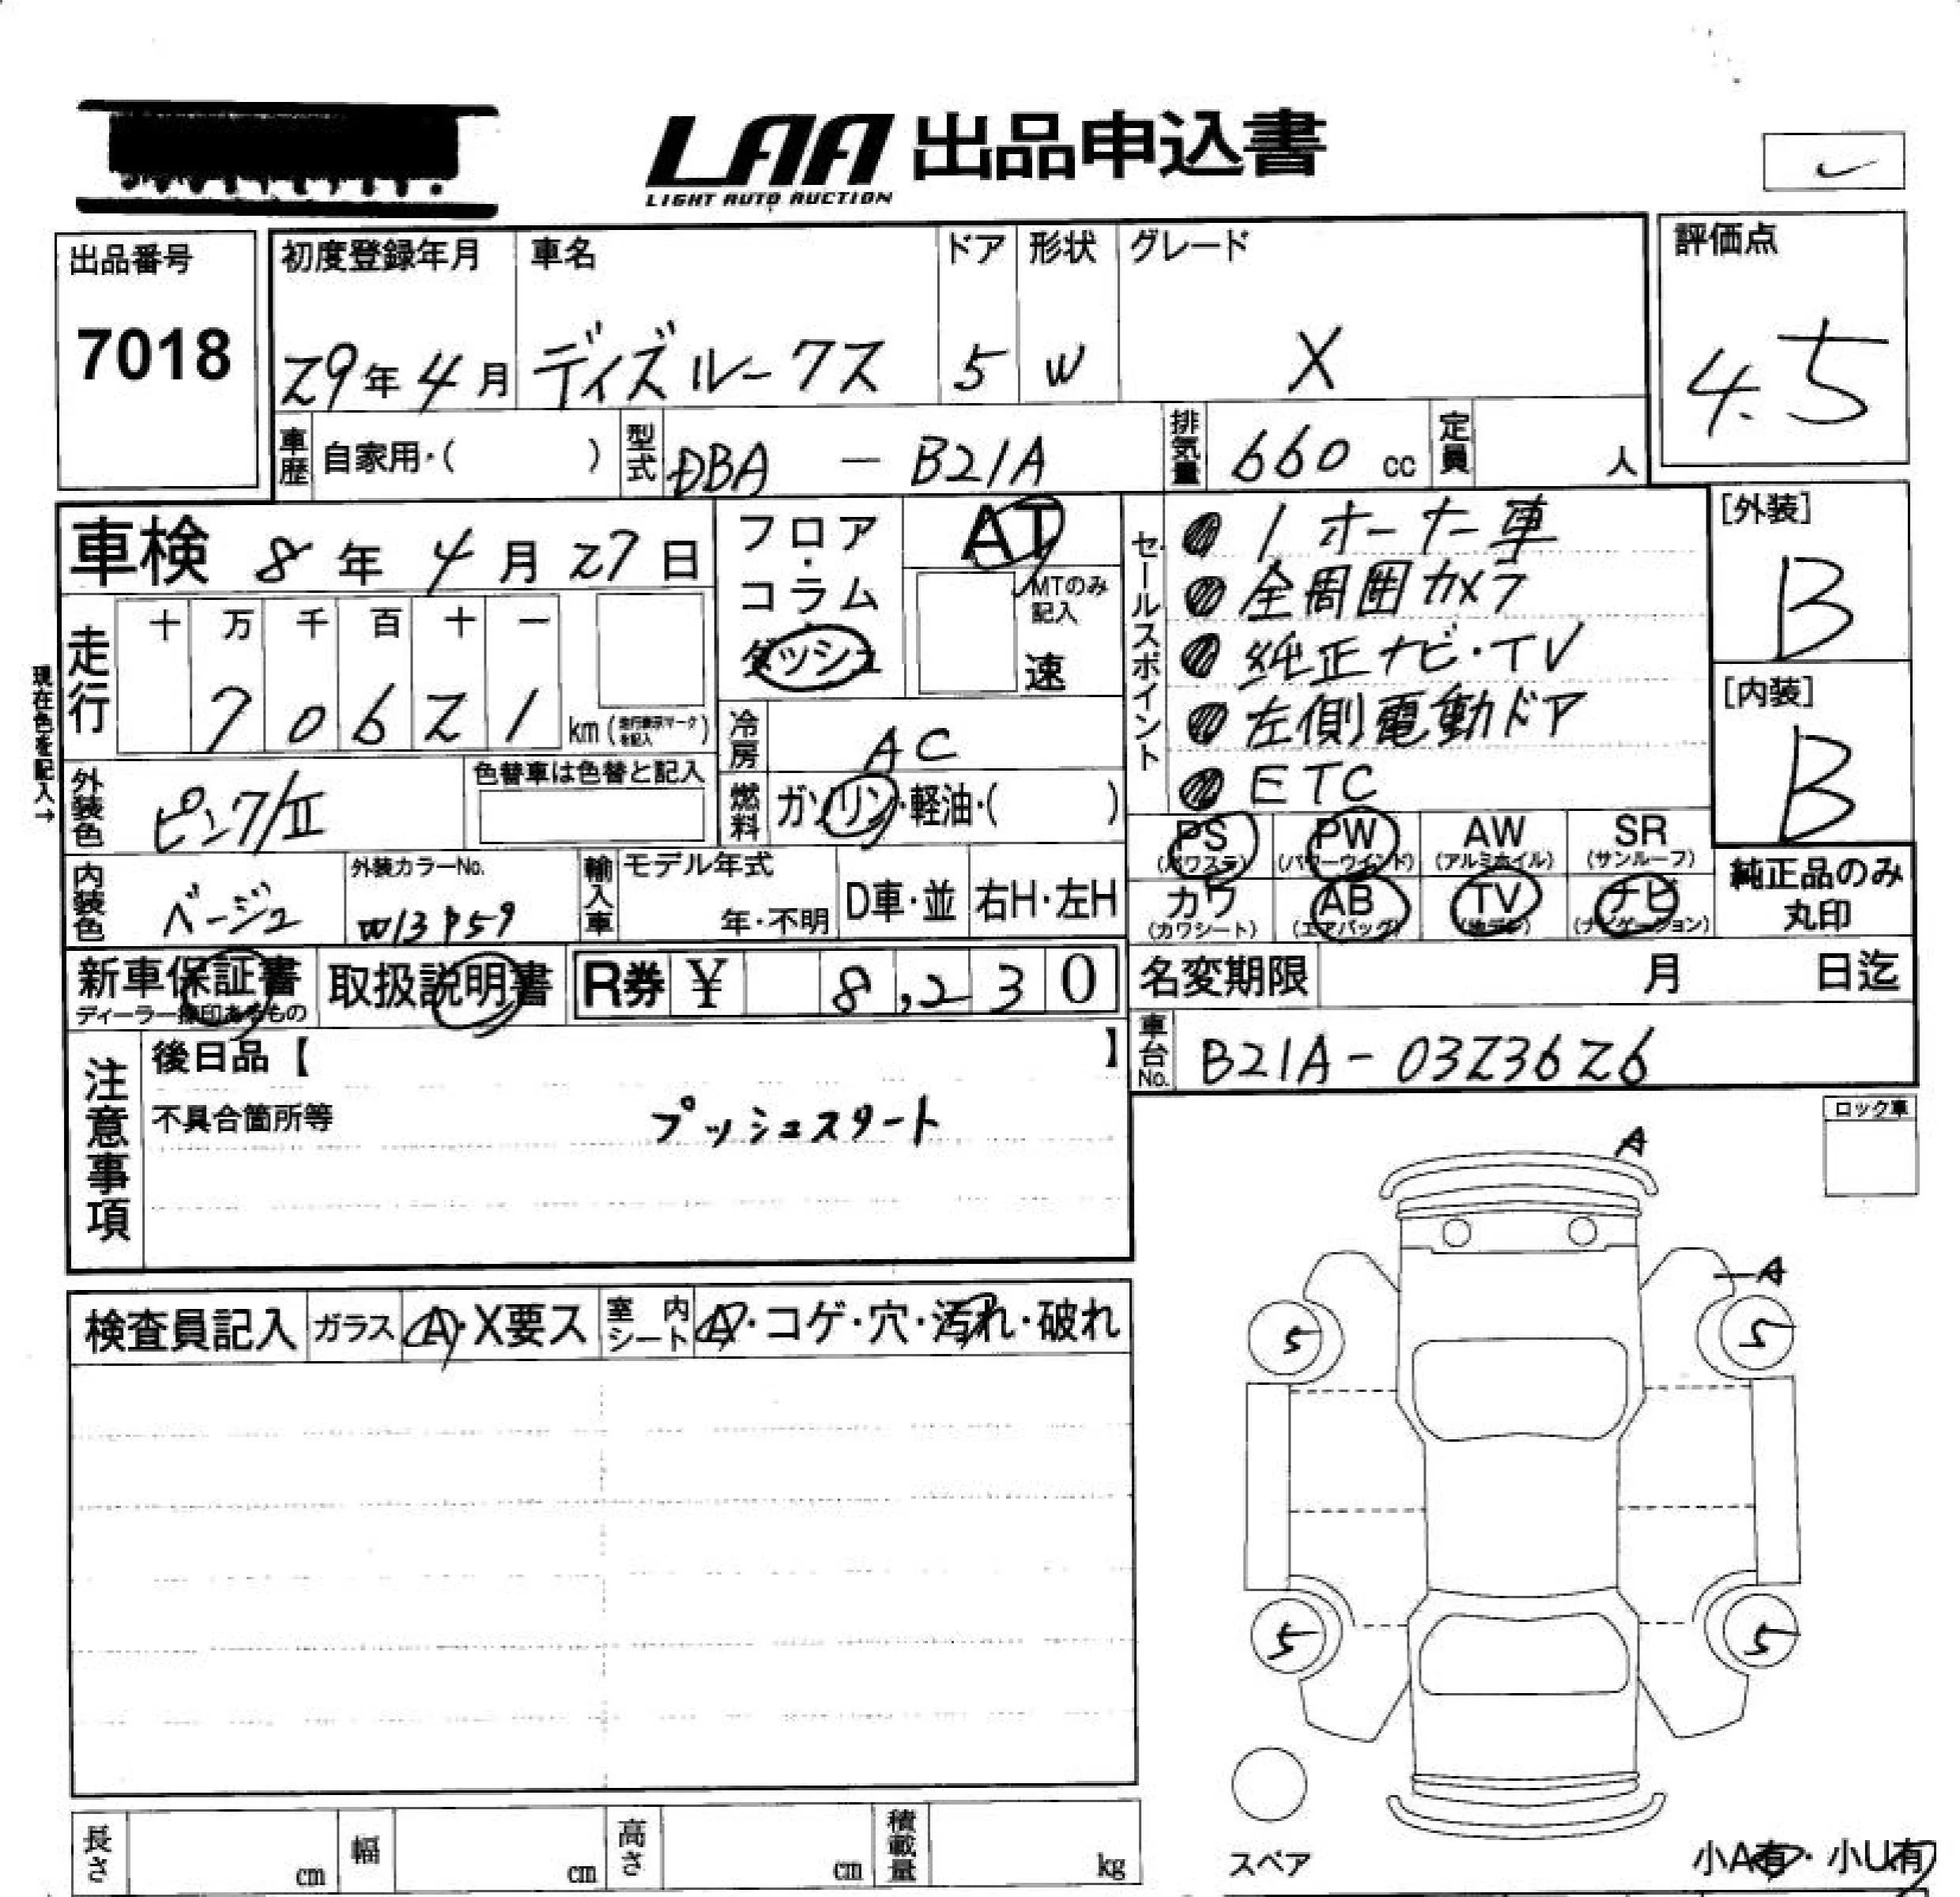 LAA 出品申込書
LIGHT AUTO AUCTION
出品番号
7018
初度登録年月 車名 ドア 形状 グレード
29年4月 ディズルークス 5 W X
評価点
4.5
車歴 自家用・( ) 型式 DBA - B21A 排気量 660 cc 定員 人
車検 8年4月27日
フロア・コラム ダッシュ
AT
MTのみ記入
速
セールスポイント
1オーナー車
全周囲カメラ
純正ナビ・TV
左側電動ドア
ETC
[外装]
B
[内装]
B
現在色を記入→
走行 十 万 千 百 十 一
70621 km (走行表示マークを記入)
冷房 AC
外装色 ピンク/II 色替車は色替と記入
燃料 ガソリン・軽油・( )
PS (パワステ) PW (パワーウインド) AW (アルミホイル) SR (サンルーフ)
カワ (カワシート) AB (エアバッグ) TV (地デジ) ナビ (ナビゲーション)
純正品のみ丸印
内装色 ベージュ 外装カラーNo. 輸入車 モデル年式 年・不明 D車・並 右H・左H
新車保証書 取扱説明書 R券 ¥ 8,230
ディーラー捺印あるもの
名変期限 月 日迄
車台No. B21A-0323626
注意事項
後日品【 】
不具合箇所等 プッシュスタート
ロック車
A
A
5 5
5 5
検査員記入 ガラス A・X要ス 室内シート A・コゲ・穴・汚れ・破れ
長さ cm 幅 cm 高さ cm 積載量 kg
スペア
小A有・小U有